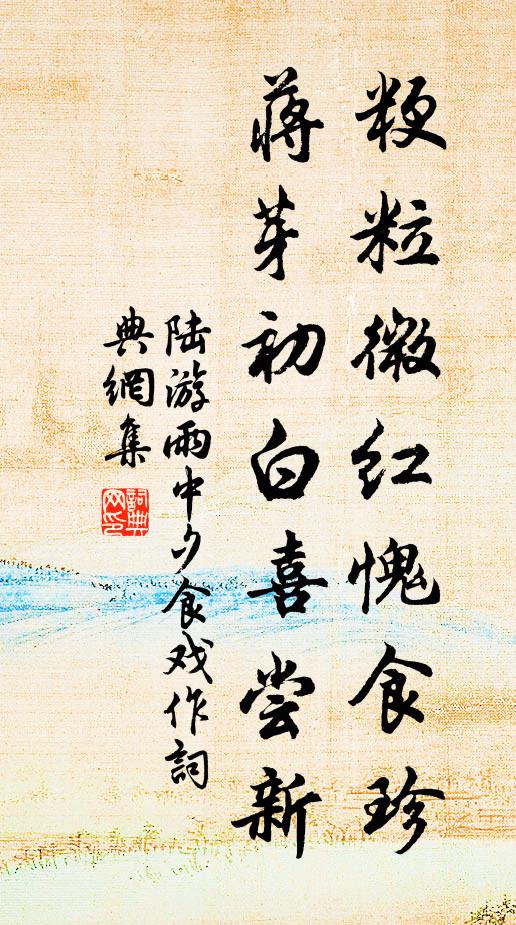 粳粒微红愧食珍
蒋芽初白喜尝新
陆游雨中夕食戏作詞
典網集
詞典
网印